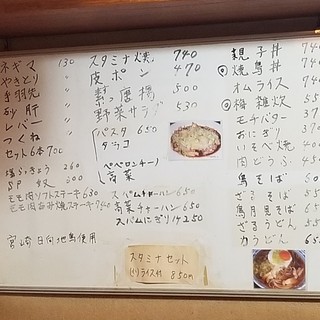 ネギマ 130
やきとり 〃
手羽先 〃
砂肝 〃
レバー 〃
つくね 〃
セット6本 700
塩らっきょう 260
モモ肉ソフトステーキ 630
モモ肉鉄み焼ステーキ 740
宮崎日向地鶏使用
スタミナ焼 740
皮ポン 470
素っ唐揚 500
野菜サラダ 530
パスタ 650
タラコ
ペペロンチーノ
高菜
スパムチャーハン 650
高菜チャーハン 650
スパムにぎり1ケ 250
スタミナセット
ライス付 850円
親子丼 740
◎焼鳥丼
オムライス
◎梅雑炊
モチバター
おにぎり
いそべ焼
肉どうふ
鳥そば
ざるそば
鳥月見そば
ざるうどん
力うどん